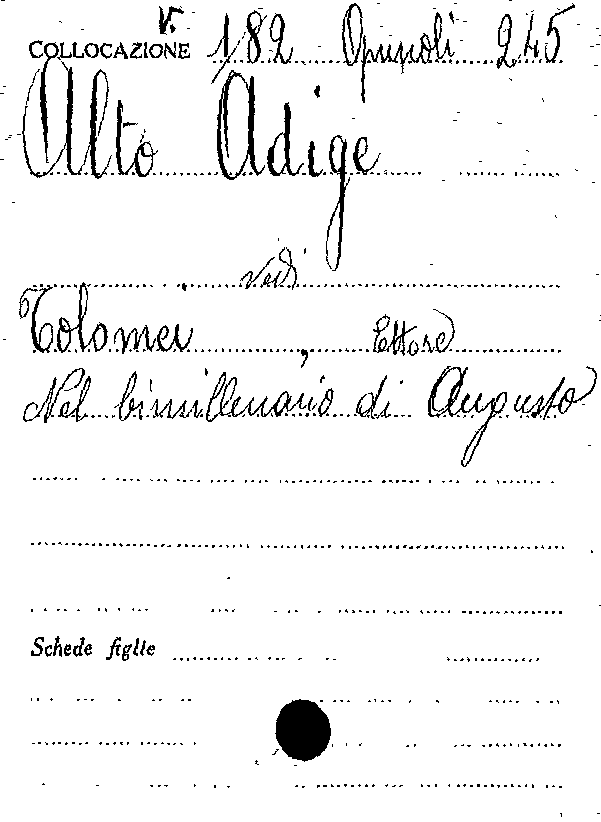 V.
COLLOCAZIONE 182 Opuscoli 245
Alto Adige
vedi
Tolomei, Ettore
Nel bimillenario di Augusto
Schede figlie